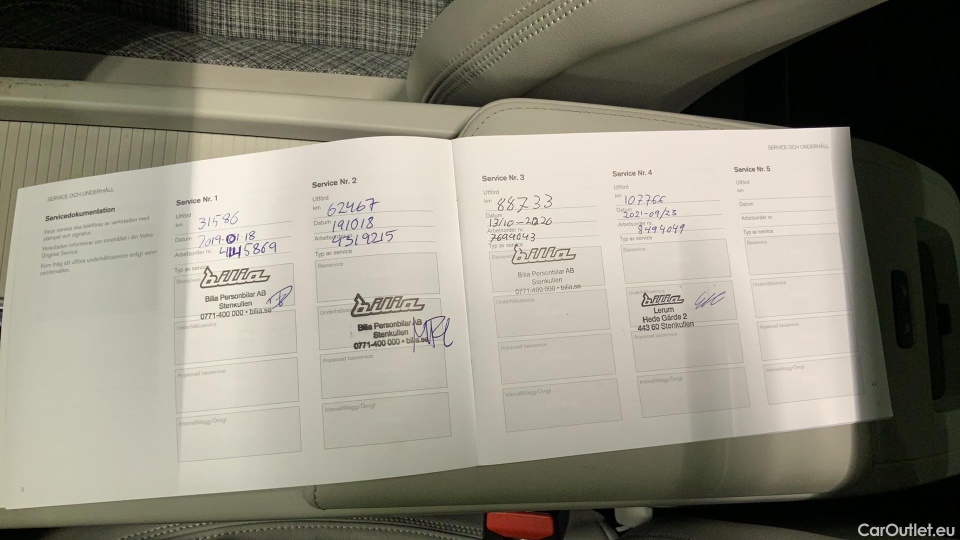 SERVICE OCH UNDERHÅLL
Servicedokumentation
Service Nr. 1
Utförd
km 31596
Datum 2019-01-18
Arbetsorder nr. 4145869
Typ av service
bilia
Bilia Personbilar AB
Stenkullen
0771-400 000 • bilia.se
Underhållsservice
Anpassad basservice
Internetillägg/Övrigt
Service Nr. 2
Utförd
km 62467
Datum 191018
Arbetsorder nr. 4319215
Typ av service
Basservice
Underhållsservice
bilia
Bilia Personbilar AB
Stenkullen
0771-400 000 • bilia.se
Anpassad basservice
SERVICE OCH UNDERHÅLL
Service Nr. 3
Utförd
km 88733
Datum 13/10-2020
Arbetsorder nr. 7699043
Typ av service
Basservice
bilia
Bilia Personbilar AB
Stenkullen
0771-400 000 • bilia.se
Underhållsservice
Anpassad basservice
Service Nr. 4
Utförd
km 107766
Datum 2021-09/23
Arbetsorder nr. 8494049
Typ av service
Basservice
Underhållsservice
bilia
Lerum
Hede Gärde 2
443 60 Stenkullen
Anpassad basservice
Service Nr. 5
Utförd
km
Datum
Arbetsorder nr.
Typ av service
Basservice
Underhållsservice
Anpassad basservice
CarOutlet.eu